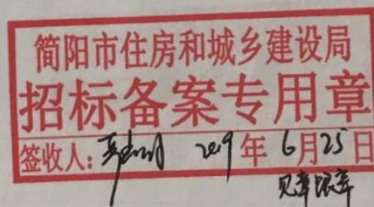 简阳市住房和城乡建设局
招标备案专用章
签收人: 2019年6月25日
见章跟章